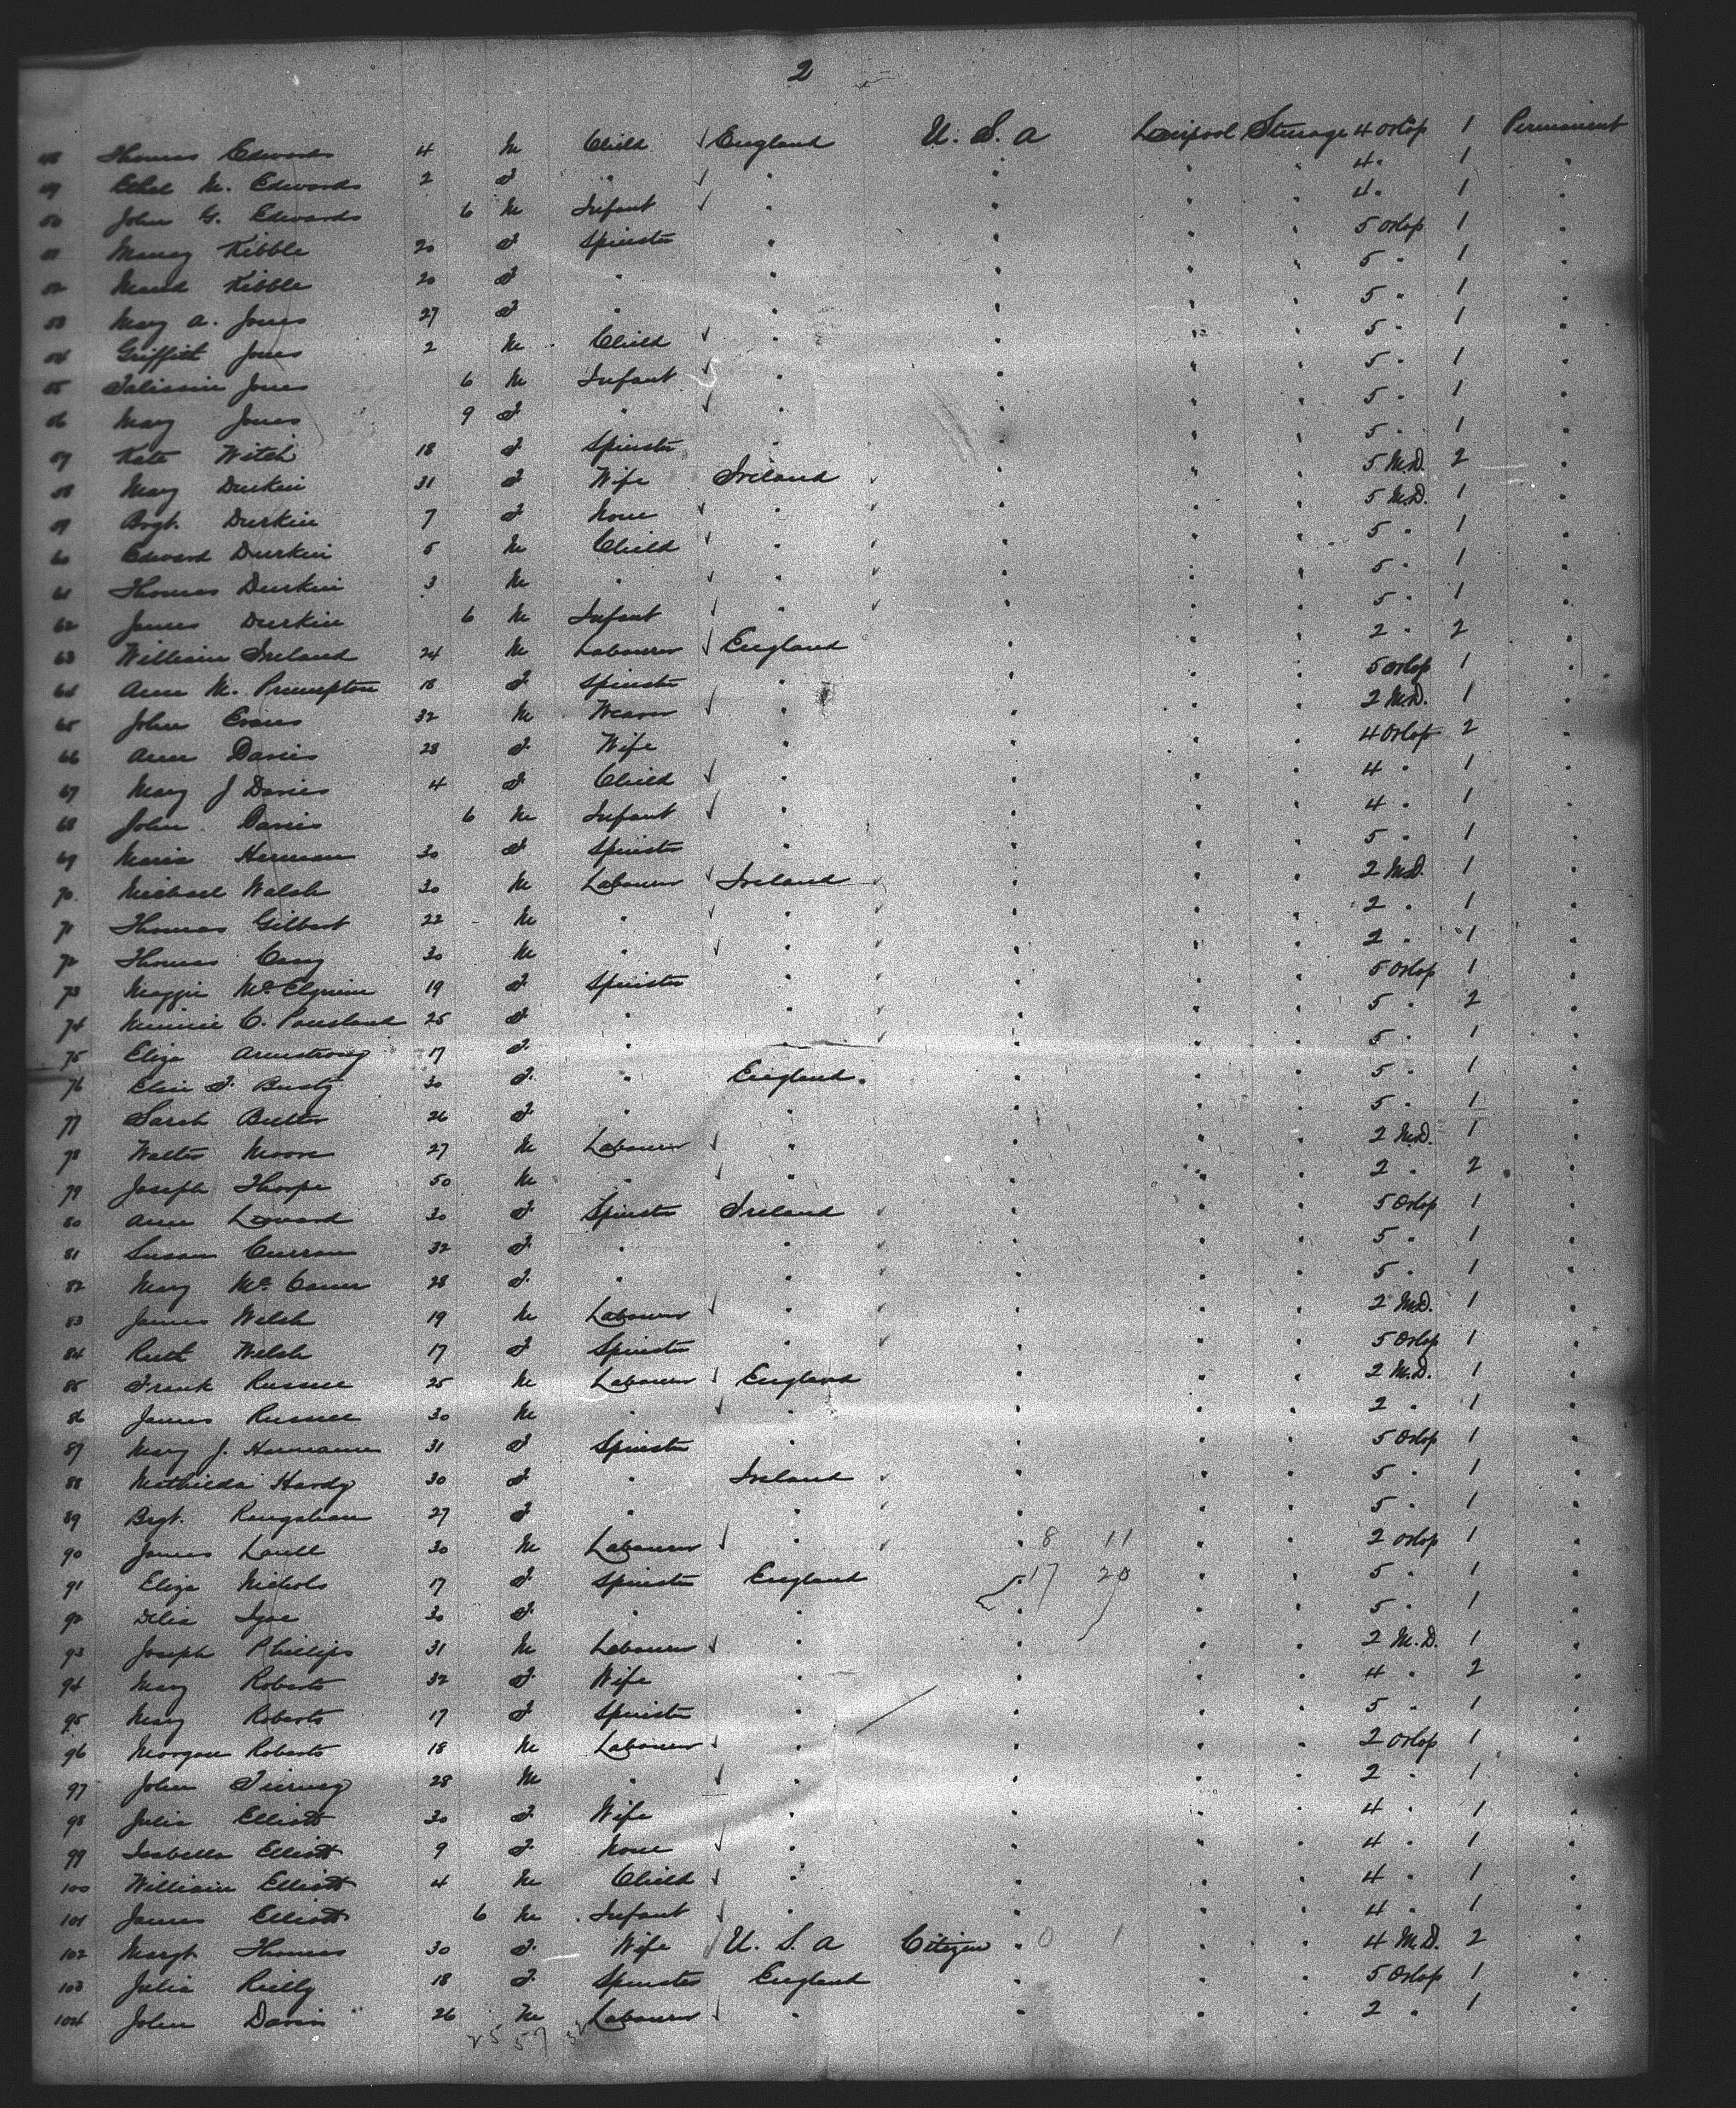 2
48 Thomas Edwards 4 M Child England U. S. A Liverpool Steerage 4 Orlop 1 Permanent
49 Ethel M. Edwards 2 F " " " " " 4 " 1 "
50 John G. Edwards 6 M Infant " " " " 4 " 1 "
51 Kibble 20 F Spinster " " " " 5 Orlop 1 "
52 Maud Kibble 20 F " " " " " 5 " 1 "
53 Mary A. Jones 27 F " " " " " 5 " 1 "
54 Griffith Jones 2 M Child " " " " 5 " 1 "
55 Taliesin Jones 6 M Infant " " " " 5 " 1 "
56 Mary Jones 9 F " " " " " 5 " 1 "
57 Kate Witch 18 F Spinster " " " " 5 " 1 "
58 Mary Durkin 31 F Wife Ireland " " " 5 M.D. 2 "
59 Brgt. Durkin 7 F None " " " " 5 M.D. 1 "
60 Edward Durkin 5 M Child " " " " 5 " 1 "
61 Thomas Durkin 3 M " " " " " 5 " 1 "
62 James Durkin 6 M Infant " " " " 5 " 1 "
63 William Ireland 24 M Labourer England " " " 2 " 2 "
64 Ann M. 18 F Spinster " " " " 5 Orlop 1 "
65 John Evans 32 M Weaver " " " " 2 M.D. 1 "
66 Ann Davies 28 F Wife " " " " 4 Orlop 2 "
67 Mary J Davies 4 F Child " " " " 4 " 1 "
68 John Davies 6 M Infant " " " " 4 " 1 "
69 Maria Herman 30 F Spinster " " " " 5 " 1 "
70 Michael Walsh 30 M Labourer Ireland " " " 2 M.D. 1 "
71 Thomas Gilbert 22 M " " " " " 2 " 1 "
72 Thomas Casey 30 M " " " " " 2 " 1 "
73 Maggie 19 F Spinster " " " " 5 Orlop 1 "
74 Minnie C. 25 F " " " " " 5 " 2 "
75 Eliza Armstrong 17 F " " " " " 5 " 1 "
76 30 F " England " " " 5 " 1 "
77 Sarah Butler 26 F " " " " " 5 " 1 "
78 Walter Moore 27 M Labourer " " " " 2 M.D. 1 "
79 Joseph Thorpe 50 M " " " " " 2 " 2 "
80 Ann Leonard 30 F Spinster Ireland " " " 5 Orlop 1 "
81 Susan Curran 32 F " " " " " 5 " 1 "
82 Mary McCann 28 F " " " " " 5 " 1 "
83 James Welsh 19 M Labourer " " " " 2 M.D. 1 "
84 Ruth Welsh 17 F Spinster " " " " 5 Orlop 1 "
85 Frank Russell 25 M Labourer England " " " 2 M.D. 1 "
86 James Russell 30 M " " " " " 2 " 1 "
87 Mary J. Hermann 31 F Spinster " " " " 5 Orlop 1 "
88 Mathilda Hardy 30 F " Ireland " " " 5 " 1 "
89 Brgt. 27 F " " " " " 5 " 1 "
90 James 30 M Labourer " " 8 11 " " 2 Orlop 1 "
91 Eliza Nichols 17 F Spinster England " 17 20 " " 5 " 1 "
92 Delia Igoe 30 F " " " " " 5 " 1 "
93 Joseph Phillips 31 M Labourer " " " " 2 M.D. 1 "
94 Mary Roberts 32 F Wife " " " " 4 " 2 "
95 Mary Roberts 17 F Spinster " " " " 5 " 1 "
96 Morgan Roberts 18 M Labourer " " " " 2 Orlop 1 "
97 John Tierney 28 M " " " " " 2 " 1 "
98 Julia Elliott 30 F Wife " " " " 4 " 1 "
99 Isabella Elliott 9 F None " " " " 4 " 1 "
100 William Elliott 4 M Child " " " " 4 " 1 "
101 James Elliott 6 M Infant " " " " 4 " 1 "
102 Margt Thomas 30 F Wife U. S. A Citizen " 0 1 " " 4 M.D. 2 "
103 Julia Reilly 18 F Spinster England " " " 5 Orlop 1 "
104 John Davis 26 M Labourer " " " " 2 " 1 "
25 57